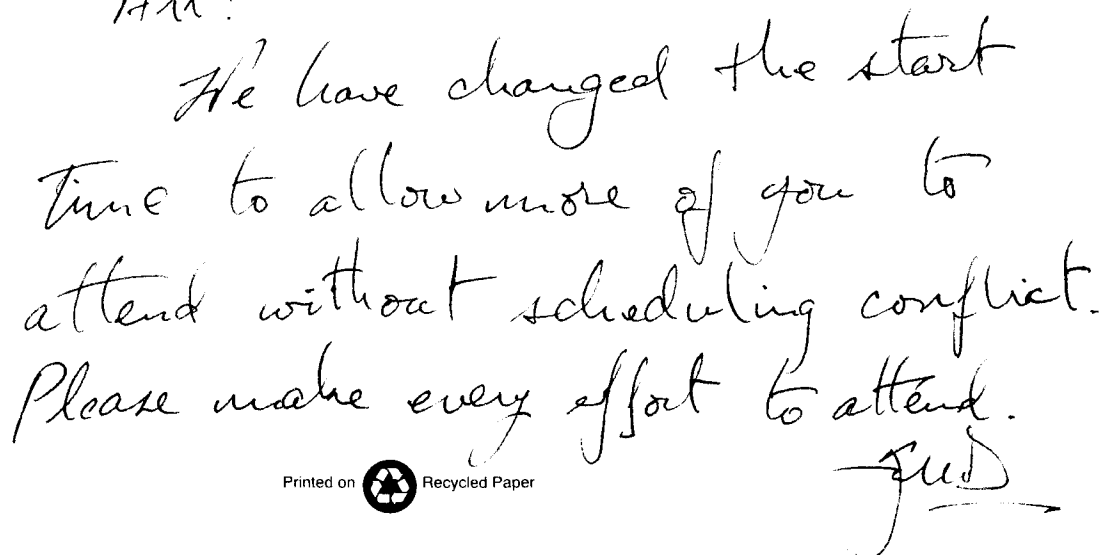 All:
We have changed the start
time to allow more of you to
attend without scheduling conflict.
Please make every effort to attend.
Printed on Recycled Paper